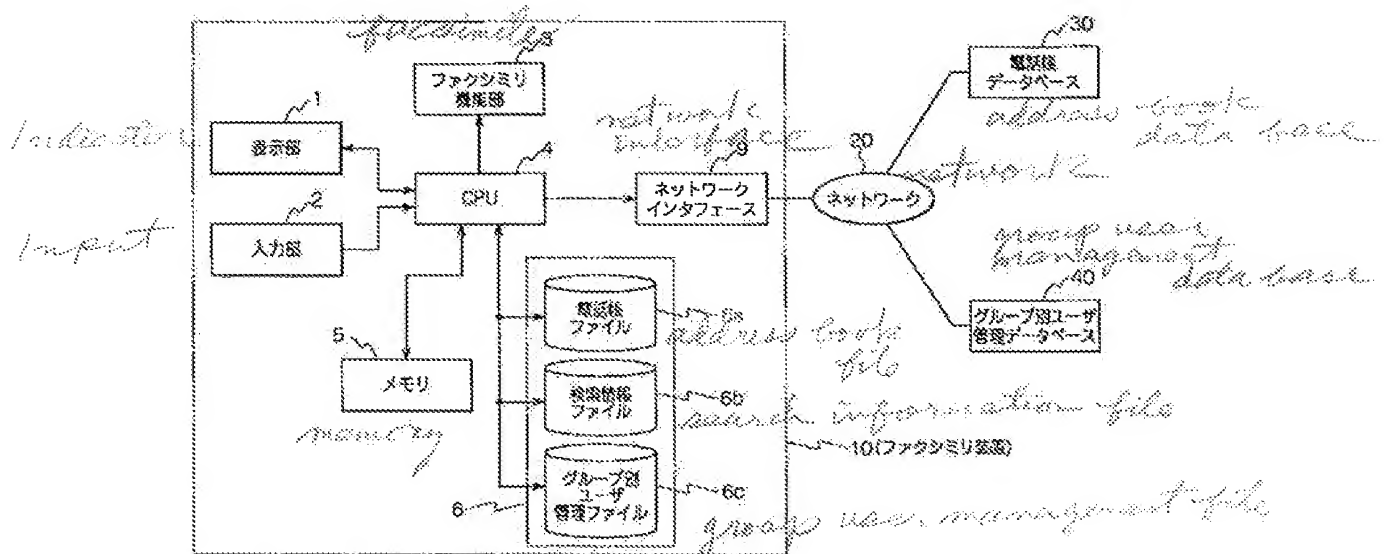 facsimile
3
ファクシミリ
機能部
30
電話帳
データベース
address book
data base
1
Indicator
表示部
network
interface
4
CPU
9
ネットワーク
インタフェース
20
network
ネットワーク
2
Input
入力部
group user
management
data base
40
グループ別ユーザ
管理データベース
電話帳
ファイル
6a
address book
file
5
メモリ
memory
検索情報
ファイル
6b
search information file
10(ファクシミリ装置)
グループ別
ユーザ
管理ファイル
6c
6
group use. management file